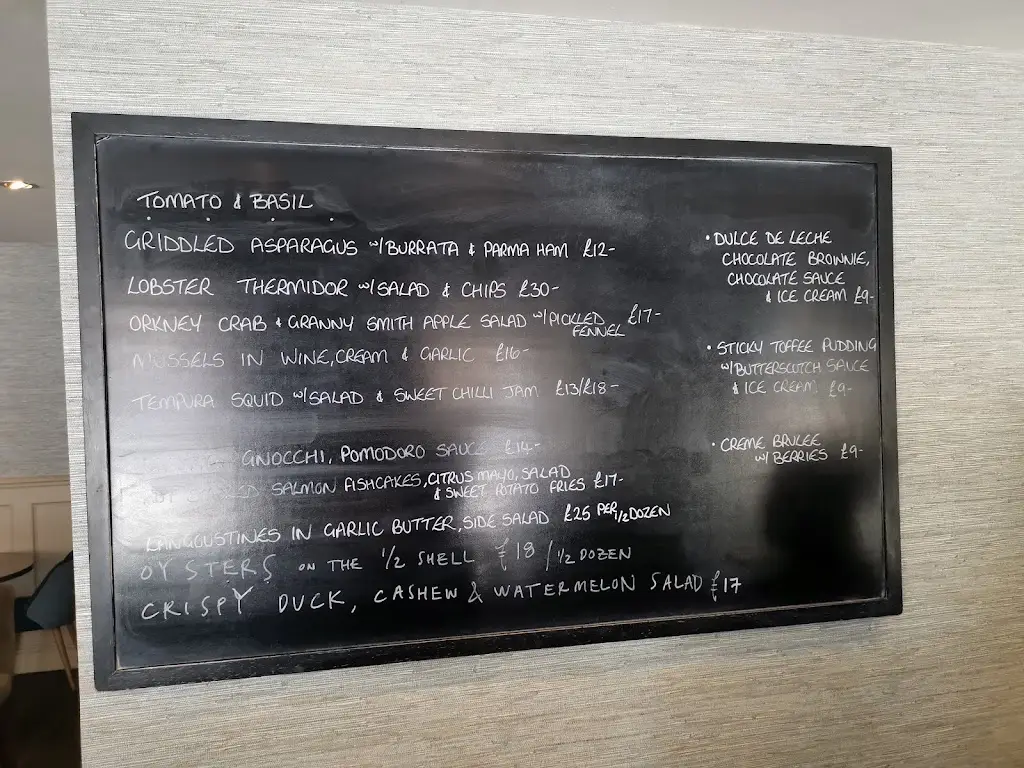 TOMATO & BASIL
GRIDDLED ASPARAGUS w/BURRATA & PARMA HAM £12-
LOBSTER THERMIDOR w/SALAD & CHIPS £30-
ORKNEY CRAB & GRANNY SMITH APPLE SALAD w/PICKLED £17-
FENNEL
MUSSELS IN WINE, CREAM & GARLIC £16-
TEMPURA SQUID w/SALAD & SWEET CHILLI JAM £13/£18-
GNOCCHI, POMODORO SAUCE £14-
SALMON FISHCAKES, CITRUS MAYO, SALAD
& SWEET POTATO FRIES £17-
LANGOUSTINES IN GARLIC BUTTER, SIDE SALAD £25 PER 1/2 DOZEN
OYSTERS ON THE 1/2 SHELL £18 / 1/2 DOZEN
CRISPY DUCK, CASHEW & WATERMELON SALAD £17
• DULCE DE LECHE
CHOCOLATE BROWNIE,
CHOCOLATE SAUCE
& ICE CREAM £9-
• STICKY TOFFEE PUDDING
w/BUTTERSCOTCH SAUCE
& ICE CREAM £9-
• CREME BRULEE
w/ BERRIES £9-